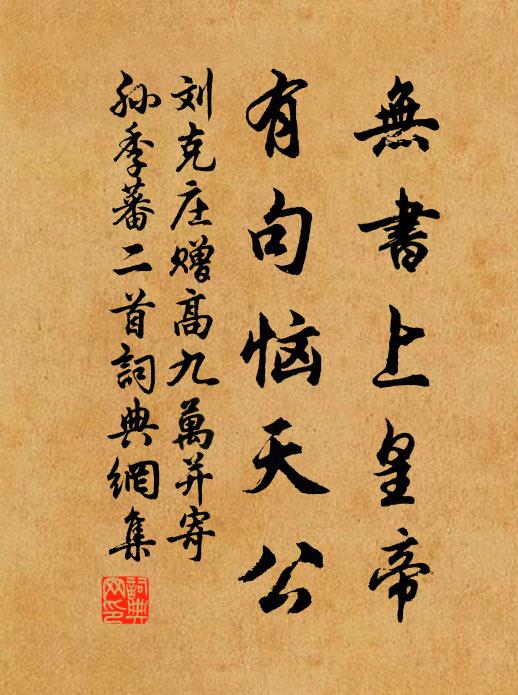 無書上皇帝
有句恼天公
刘克庄赠高九萬并寄
孙季蕃二首詞典網集
詞典
网印